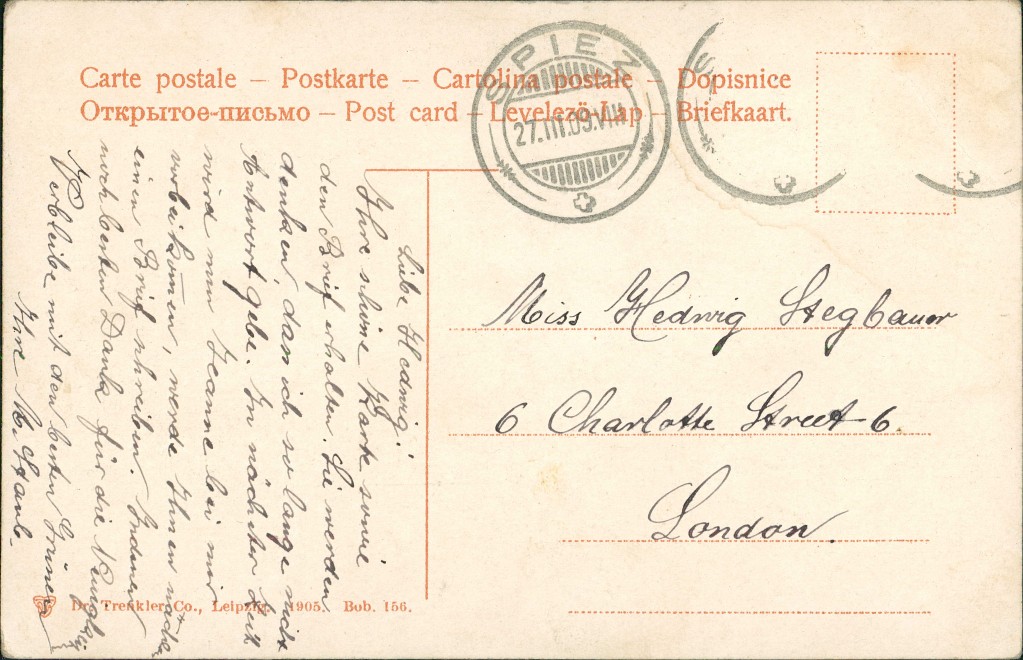 Carte postale – Postkarte – Cartolina postale – Dopisnice
Открытое-письмо – Post card – Levelezö-Lap – Briefkaart.
SPIEZ
27.III.09.VIII
Miss Hedwig Stegbauer
6 Charlotte Street 6.
London.
Liebe Hedwig!
Ihre schöne Karte sowie
den Brief erhalten. Sie werden
denken dass ich so lange nicht
Antwort gebe. In nächster Zeit
wird nun Jeanne bei mir
vorbei kom̄en, werde Ihnen nachher
einen Brief schreiben. Indessen
noch besten Dank für die
verbleibe mit den besten Grüssen
Ihre M. Staub.
Dr. Trenkler Co., Leipzig. 1905. Bob. 156.